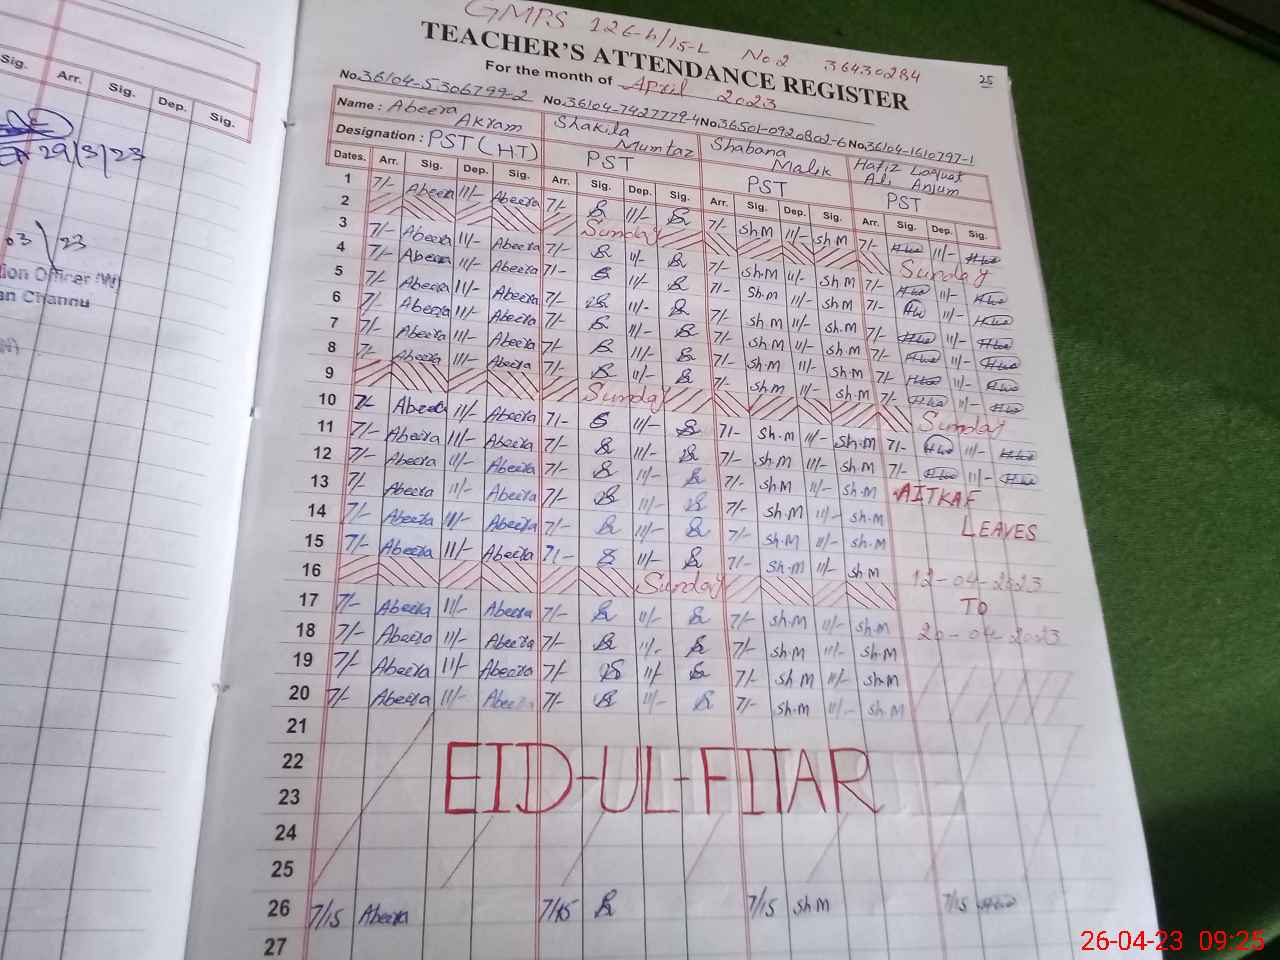 GMPS 126-b/15-L No.2 36430284
TEACHER'S ATTENDANCE REGISTER 25
For the month of April 2023
No.36104-5306799-2 No.36104-7427779-4 No.36501-0920802-6 No.36104-1610797-1
Name : Abeera Akram Shakila Mumtaz Shabana Malik Hafiz Laquat Ali Anjum
Designation : PST (HT) PST PST PST
Dates. Arr. Sig. Dep. Sig. Arr. Sig. Dep. Sig. Arr. Sig. Dep. Sig. Arr. Sig. Dep. Sig.
1 7/- Abeera 11/- Abeera 7/- 11/- 7/- Sh.M 11/- Sh.M 7/- 11/-
2 Sunday Sunday
3 7/- Abeera 11/- Abeera 7/- 11/- 7/- Sh.M 11/- Sh.M 7/- 11/-
4 7/- Abeera 11/- Abeera 7/- 11/- 7/- Sh.M 11/- Sh.M 7/- 11/-
5 7/- Abeera 11/- Abeera 7/- 11/- 7/- Sh.M 11/- Sh.M 7/- 11/-
6 7/- Abeera 11/- Abeera 7/- 11/- 7/- Sh.M 11/- Sh.M 7/- 11/-
7 7/- Abeera 11/- Abeera 7/- 11/- 7/- Sh.M 11/- Sh.M 7/- 11/-
8 7/- Abeera 11/- Abeera 7/- 11/- 7/- Sh.M 11/- Sh.M 7/- 11/-
9 Sunday Sunday
10 7/- Abeera 11/- Abeera 7/- 11/- 7/- Sh.M 11/- Sh.M 7/- 11/-
11 7/- Abeera 11/- Abeera 7/- 11/- 7/- Sh.M 11/- Sh.M 7/- 11/-
12 7/- Abeera 11/- Abeera 7/- 11/- 7/- Sh.M 11/- Sh.M AITKAF
13 7/- Abeera 11/- Abeera 7/- 11/- 7/- Sh.M 11/- Sh.M LEAVES
14 7/- Abeera 11/- Abeera 7/- 11/- 7/- Sh.M 11/- Sh.M
15 7/- Abeera 11/- Abeera 7/- 11/- 7/- Sh.M 11/- Sh.M 12-04-2023
16 Sunday TO
17 7/- Abeera 11/- Abeera 7/- 11/- 7/- Sh.M 11/- Sh.M 20-04-2023
18 7/- Abeera 11/- Abeera 7/- 11/- 7/- Sh.M 11/- Sh.M
19 7/- Abeera 11/- Abeera 7/- 11/- 7/- Sh.M 11/- Sh.M
20 7/- Abeera 11/- Abeera 7/- 11/- 7/- Sh.M 11/- Sh.M
21
22 EID-UL-FITAR
23
24
25
26 7/15 Abeera 7/15 7/15 Sh M 7/15
27
Sig. Arr. Sig. Dep. Sig.
29/3/23
03/23
ion Officer (W)
an Channu
26-04-23 09:25